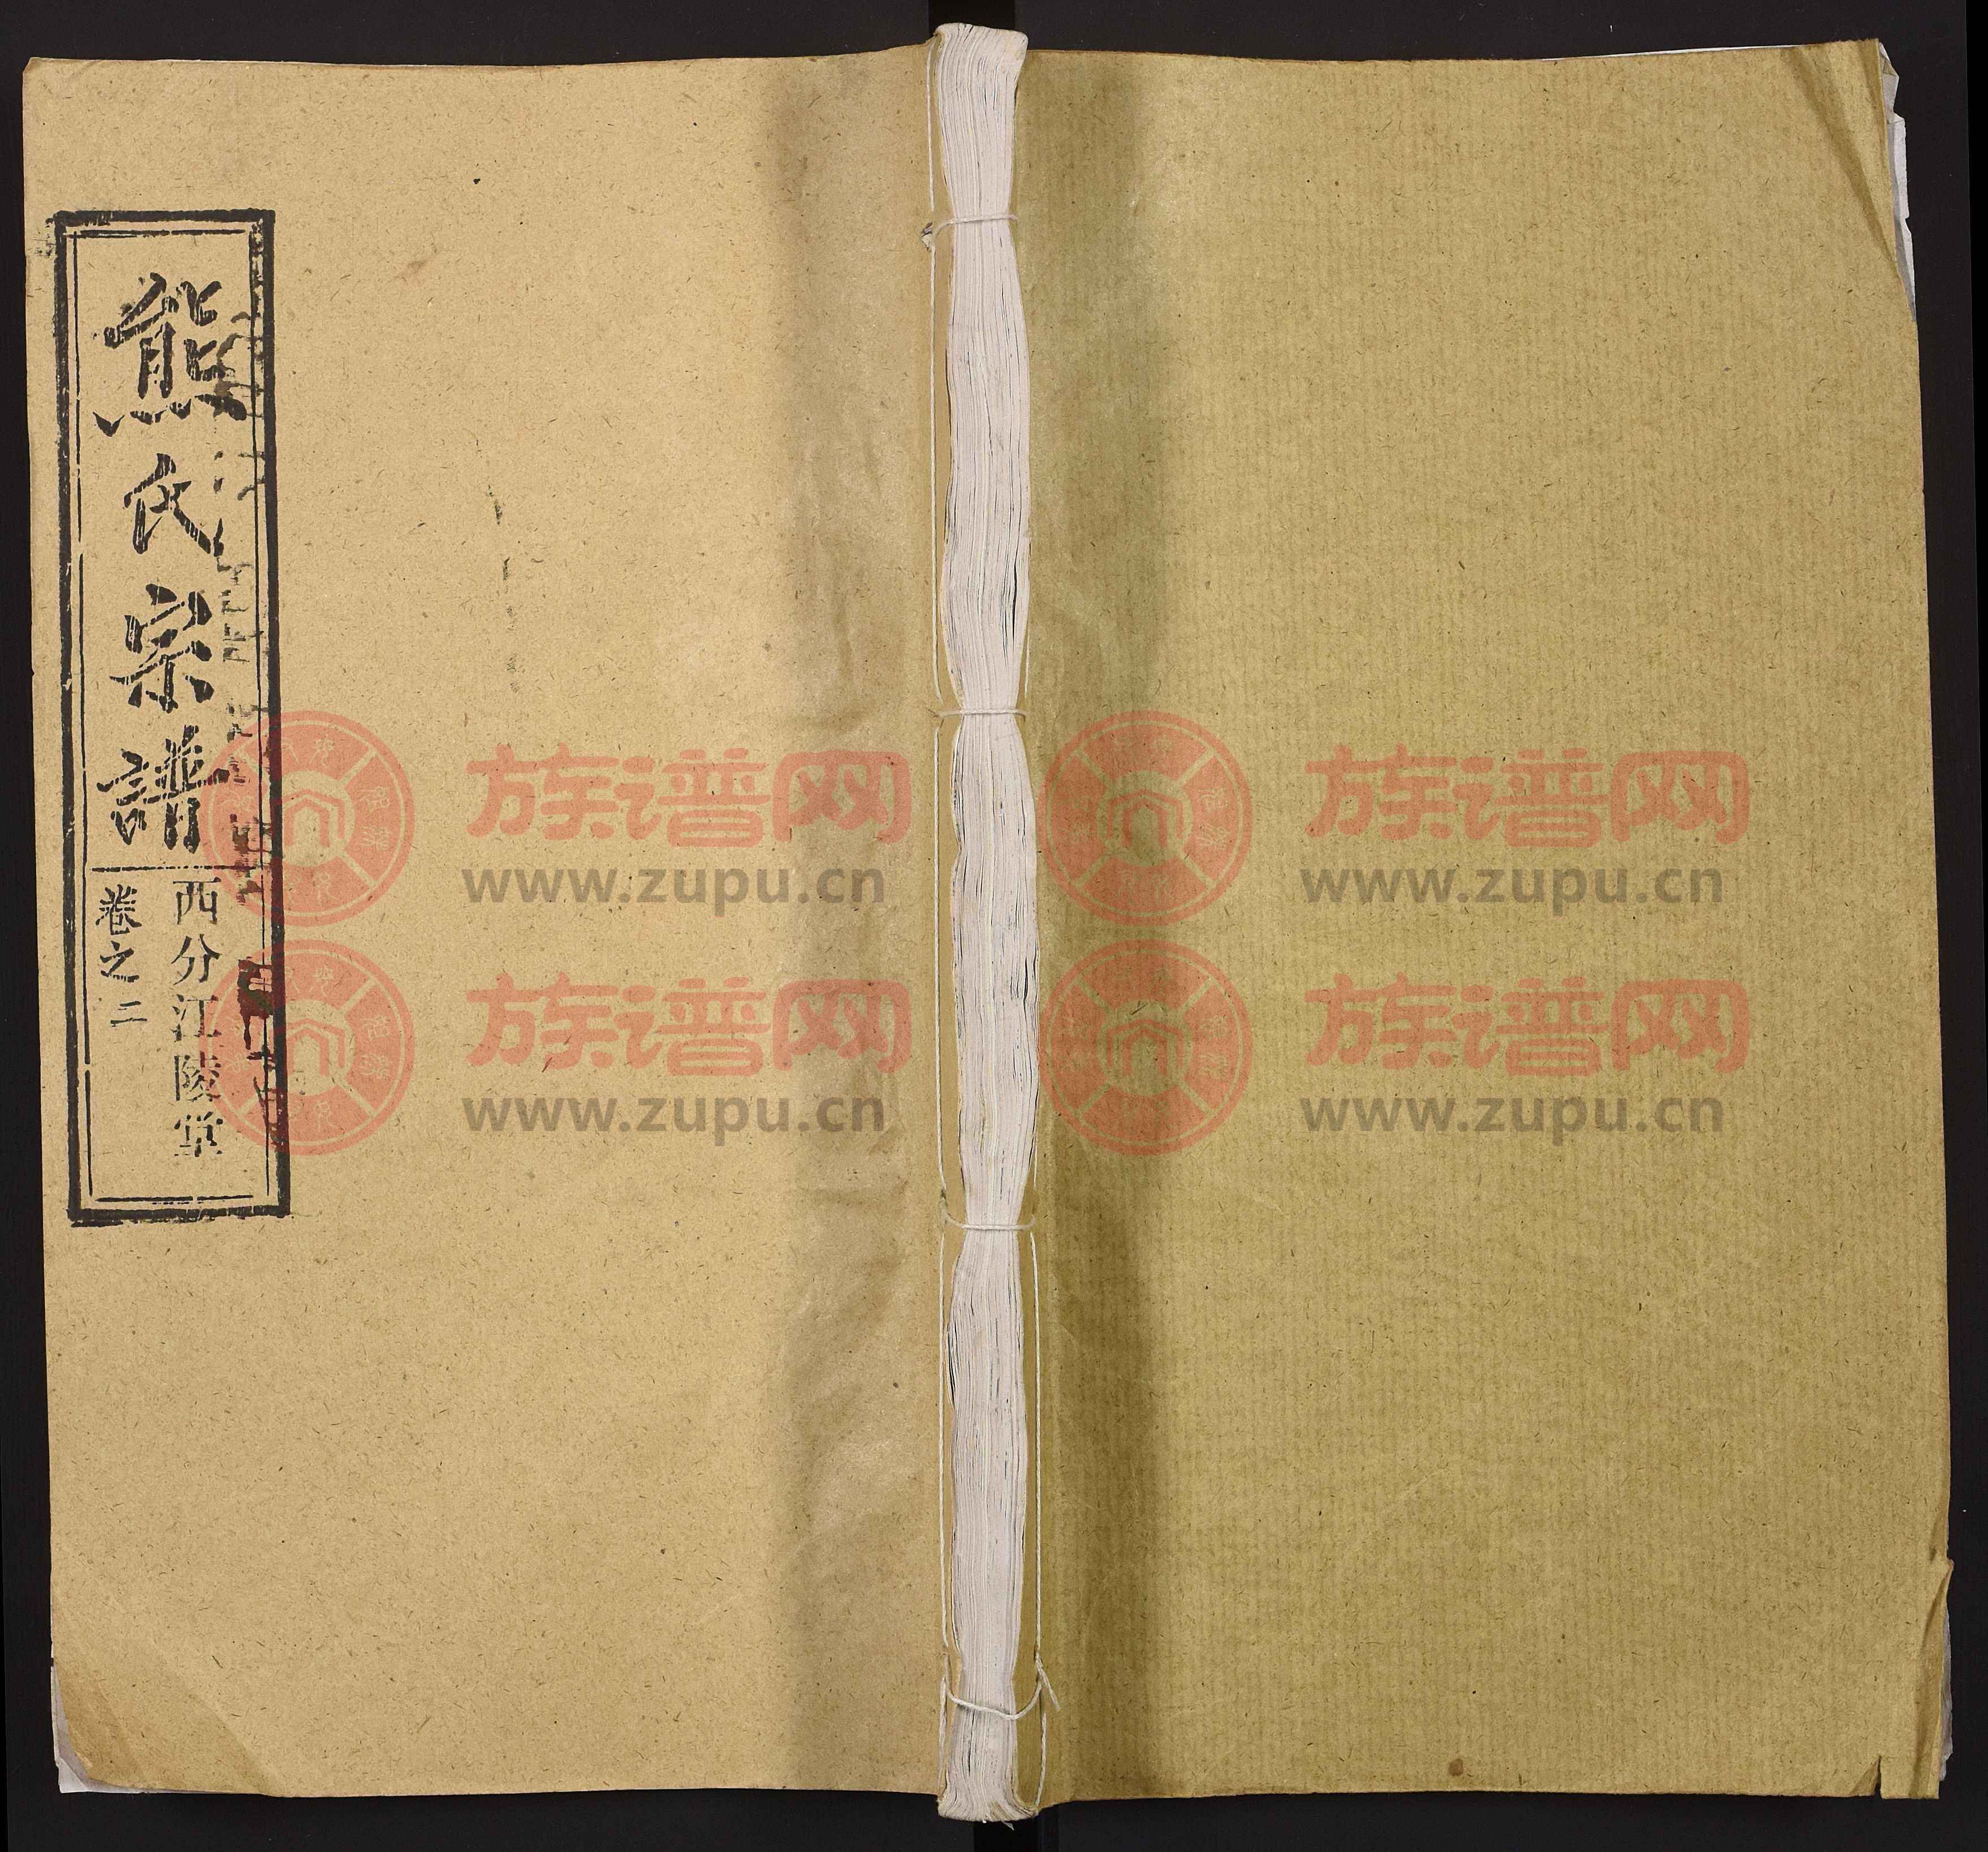 熊氏宗譜
西分江陵堂
卷之二
族谱网
www.zupu.cn
族谱网
www.zupu.cn
族谱网
www.zupu.cn
族谱网
www.zupu.cn